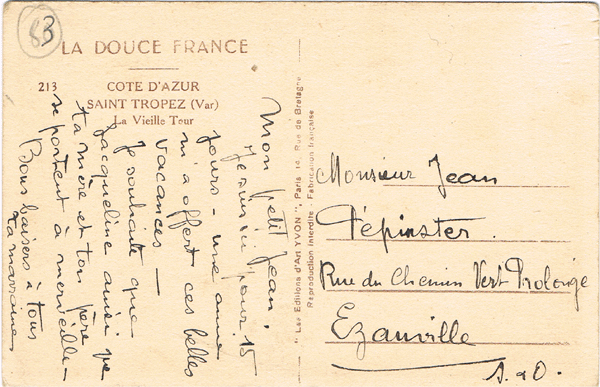 83
LA DOUCE FRANCE
213
COTE D'AZUR
SAINT TROPEZ (Var)
La Vieille Tour
Mon petit Jean,
Je suis ici pour 15
jours - une amie
m'a offert ces belles
vacances -
Je souhaite que
Jacqueline ainsi que
ta mère et ton père
se portent à merveille -
Bons baisers à tous
Ta marraine
" Les Editions d'Art YVON ", Paris, 14, Rue de Bretagne
Reproduction Interdite - Fabrication française
Monsieur Jean
Pépinster.
Rue du Chemin Vert Prolongé
Ezanville
S. & O.